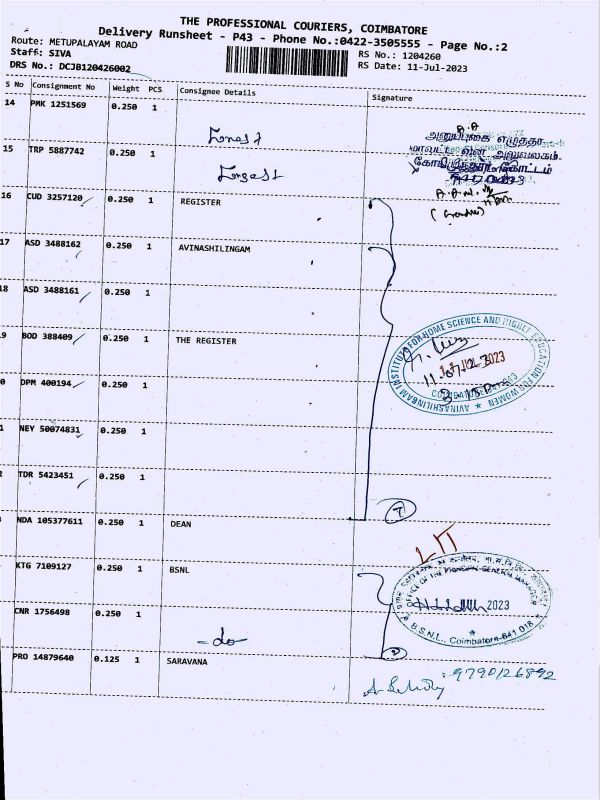 THE PROFESSIONAL COURIERS, COIMBATORE
Delivery Runsheet - P43 - Phone No.:0422-3505555 - Page No.:2
Route: METUPALAYAM ROAD
RS No.: 1204260
Staff: SIVA
RS Date: 11-Jul-2023
DRS No.: DCJB120426002
S No Consignment No Weight PCS Consignee Details Signature
14 PMK 1251569 0.250 1
Forest
A.A
அனுப்புகை எழுத்தர்
மாவட்ட வன அலுவலகம்
15 TRP 5887742 0.250 1
Forest
16 CUD 3257120 0.250 1 REGISTER
17 ASD 3488162 0.250 1 AVINASHILINGAM
18 ASD 3488161 0.250 1
9 BOD 388409 0.250 1 THE REGISTER
AVINASHILINGAM INSTITUTE FOR HOME SCIENCE AND HIGHER EDUCATION FOR WOMEN
JUL 2023
0 DPM 400194 0.250 1
1 NEY 50074831 0.250 1
2 TDR 5423451 0.250 1
7
NDA 105377611 0.250 1 DEAN
KTG 7109127 0.250 1 BSNL
OFFICE OF THE PRINCIPAL GENERAL MANAGER
2023
B.S.N.L., Coimbatore-641 018
CNR 1756498 0.250 1
-do
2
PRO 14879640 0.125 1 SARAVANA
9790126892